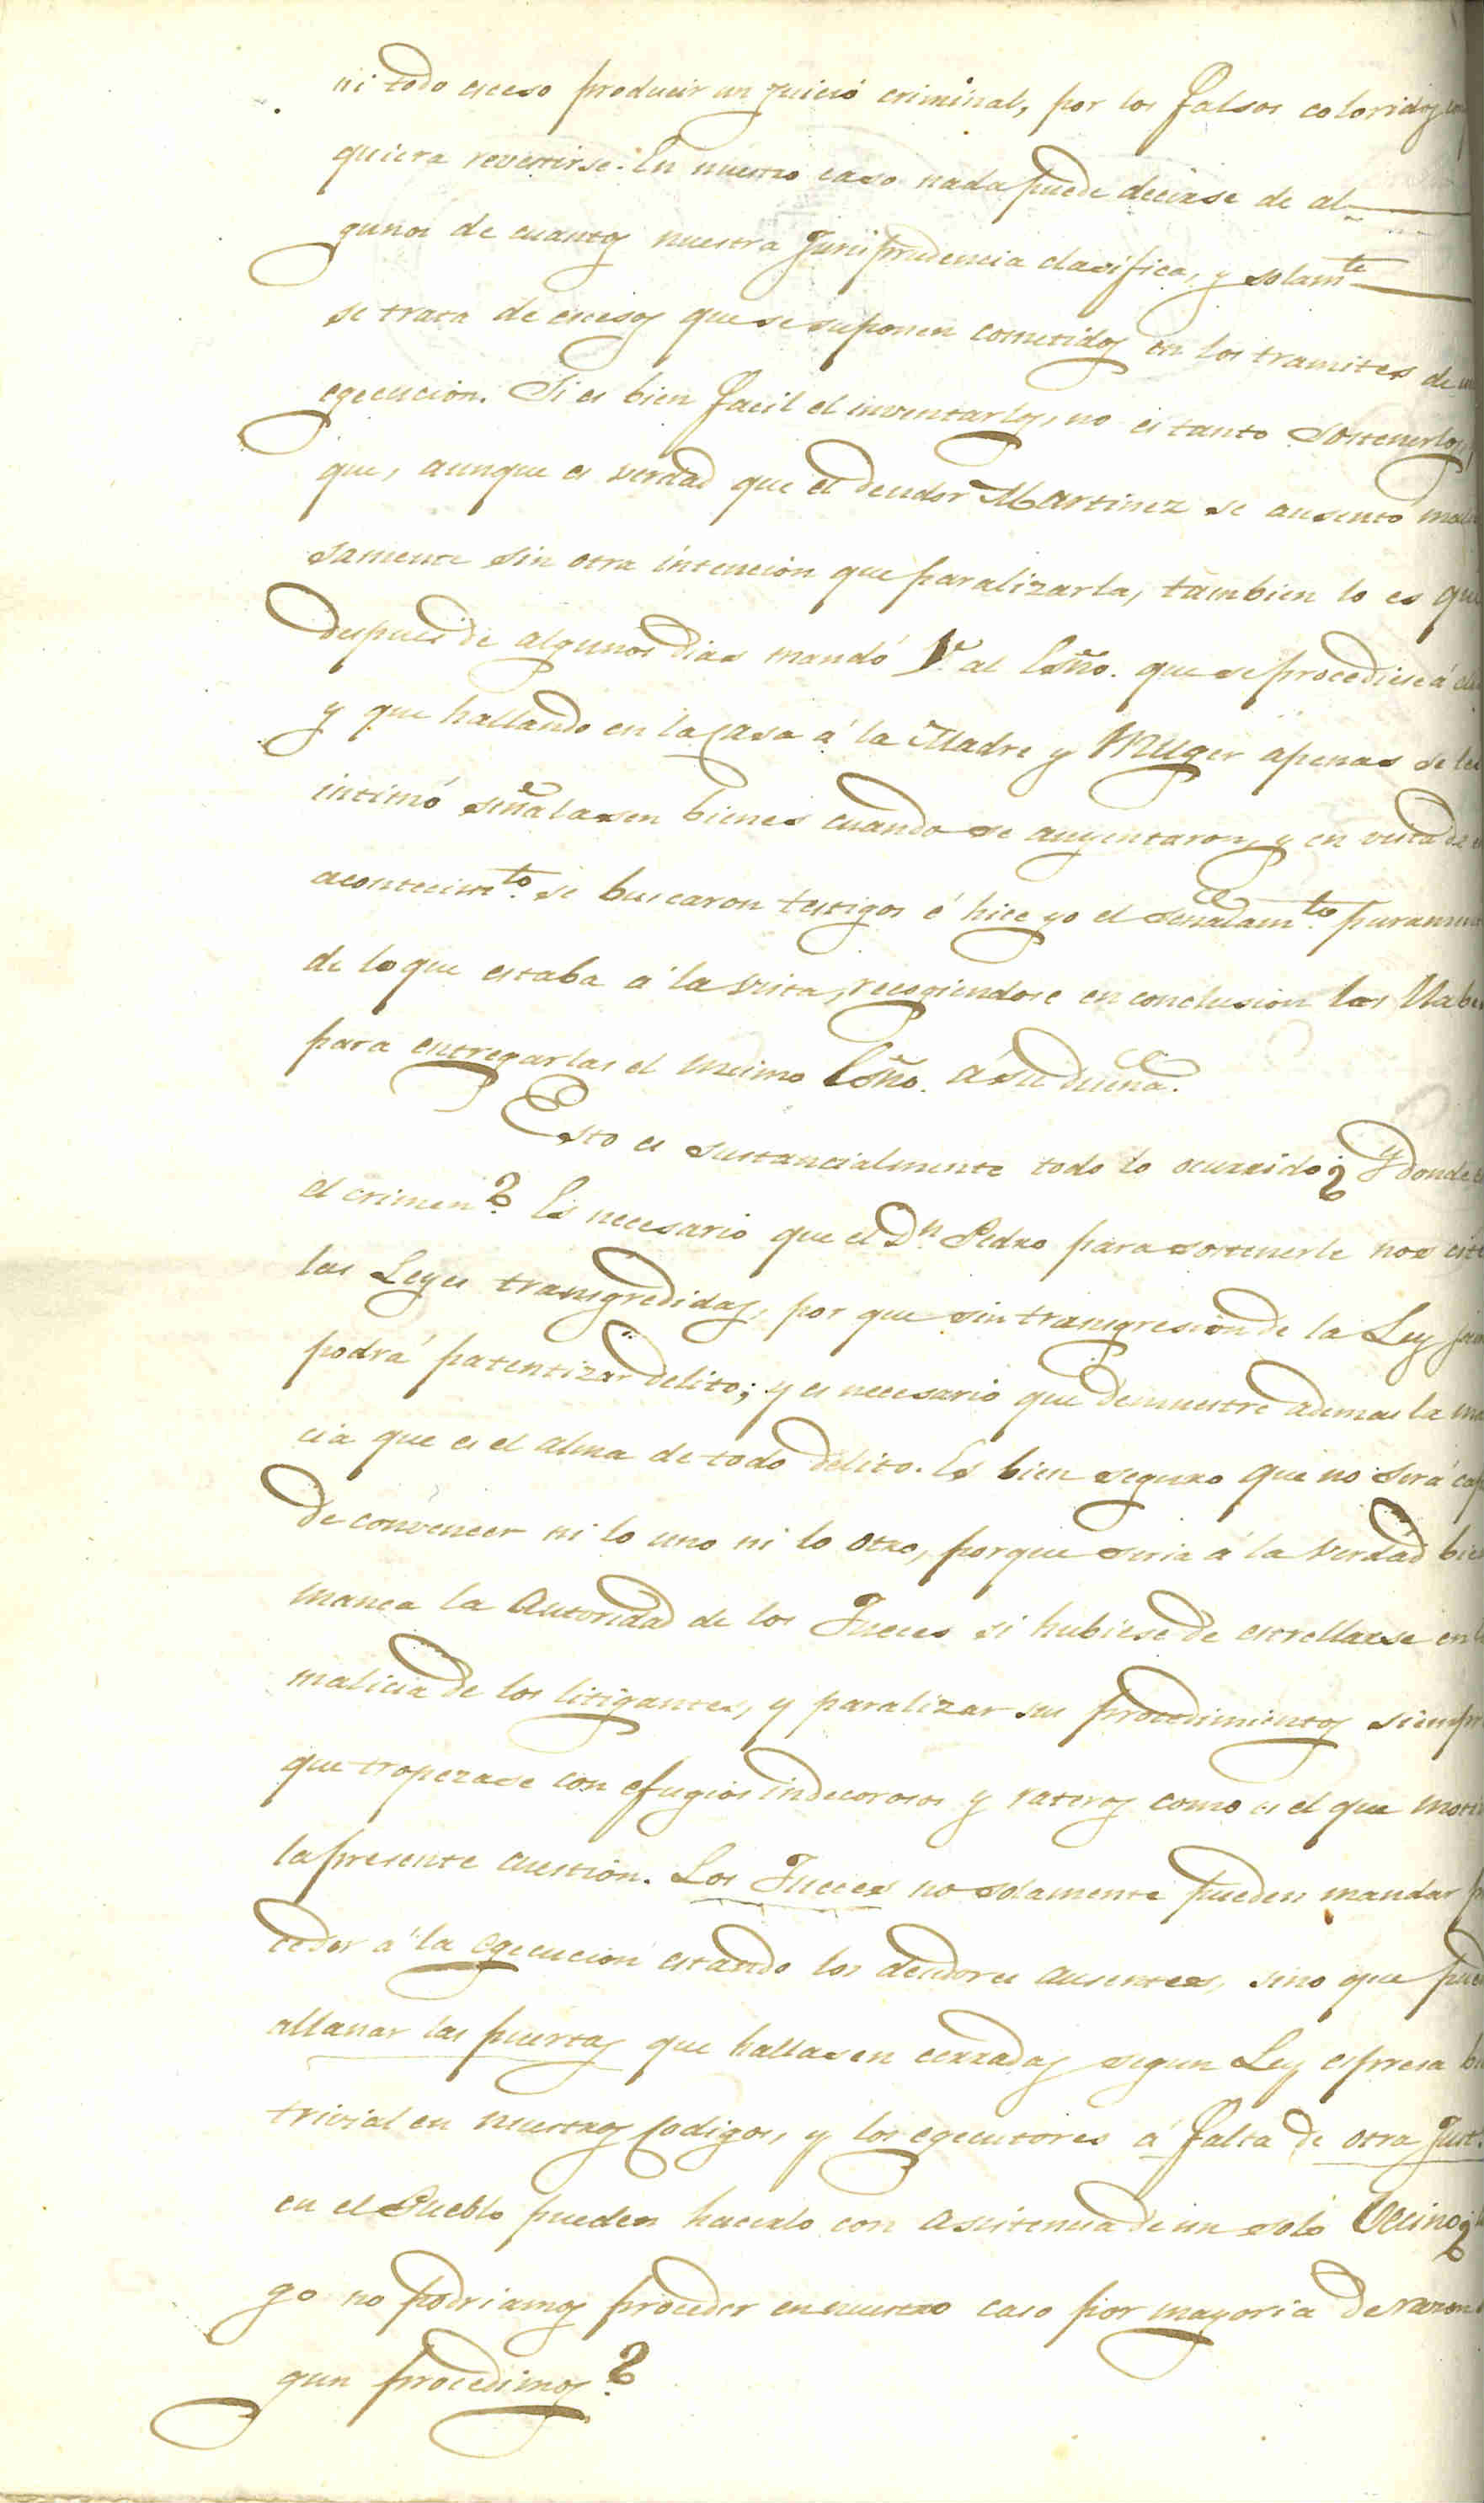 ni todo exceso producir un juicio criminal, por los falsos coloridos
quiera revestirse. En nuestro caso nada puede decirse de al-
gunos de cuantos nuestra Jurisprudencia clasifica, y solam.te
se trata de excesos que se suponen cometidos en los tramites de
egecucion. Si es bien facil el inventarlos, no es tanto sostenerlos,
que, aunque es verdad que el deudor Martinez se ausentó
samente sin otra intencion que paralizarla, tambien lo es que
despues de algunos dias mandó V. al Esño. que se procediese á
y que hallando en la Casa á la Madre y Muger apenas se les
intimó señalasen bienes cuando se auyentaron, y en vista de
acontecim.to se buscaron testigos é hice yo el señalam.to
de lo que estaba á la vista, recogiendose en conclusion las
para entregarlas el mismo Esño. á su dueña.
Esto es sustancialmente todo lo ocurrido ¿Y donde
el crimen? Es necesario que el D.n Pedro para sostenerle nos cite
las Leyes transgredidas, por que sin transgresion de la Ley
podrá patentizar delito; y es necesario que demuestre ademas la
cia que es el alma de todo delito. Es bien seguro que no será
de convencer ni lo uno ni lo otro, porque seria á la verdad
manca la Autoridad de los Jueces si hubiese de estrellarse en
malicia de los litigantes, y paralizar sus procedimientos
que tropezase con efugios indecorosos y rateros como es el que
la presente cuestion. Los Jueces no solamente pueden mandar
ceder á la egecucion estando los deudores ausentes, sino que
allanar las puertas que hallasen cerradas segun Ley espresa
trivial en nuestros Codigos, y los egecutores á falta de otra Just.
en el Pueblo pueden hacerlo con asistencia de un solo Vecino ¿
go no podriamos proceder en nuestro caso por mayoria de razon
gun procedimos?